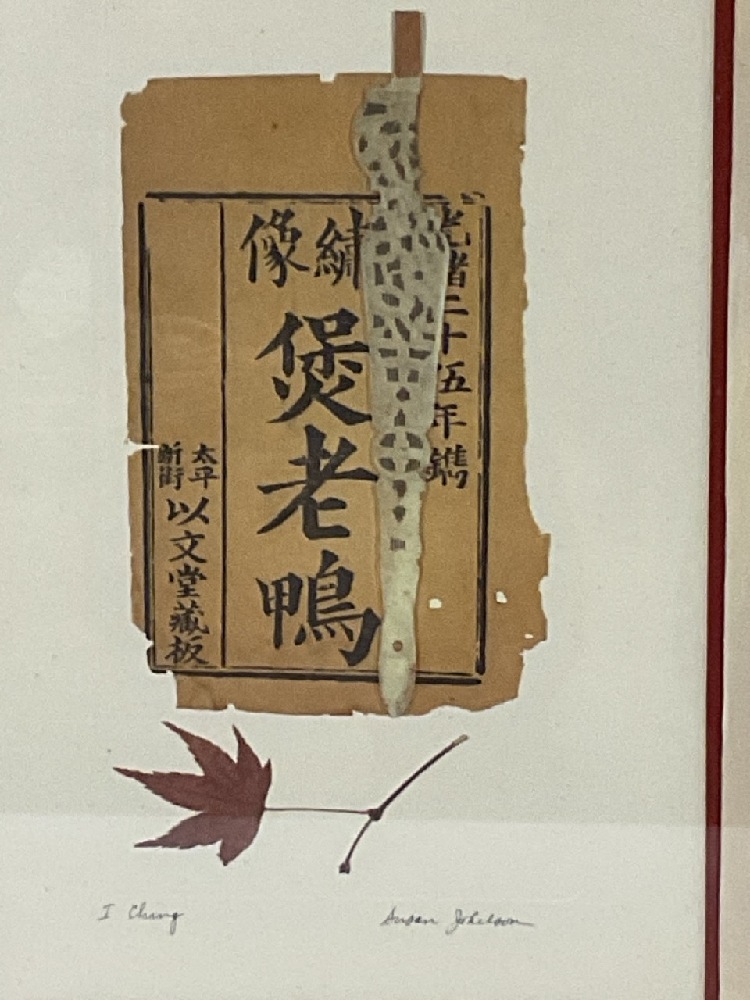 光緒二十五年鐫
繡像
煲老鴨
太平
新街
以文堂藏板
I Ching
Susan Jokelson